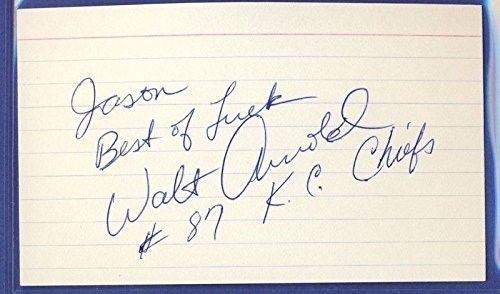 Jason
Best of Luck
Walt Arnold
# 87 K.C. Chiefs